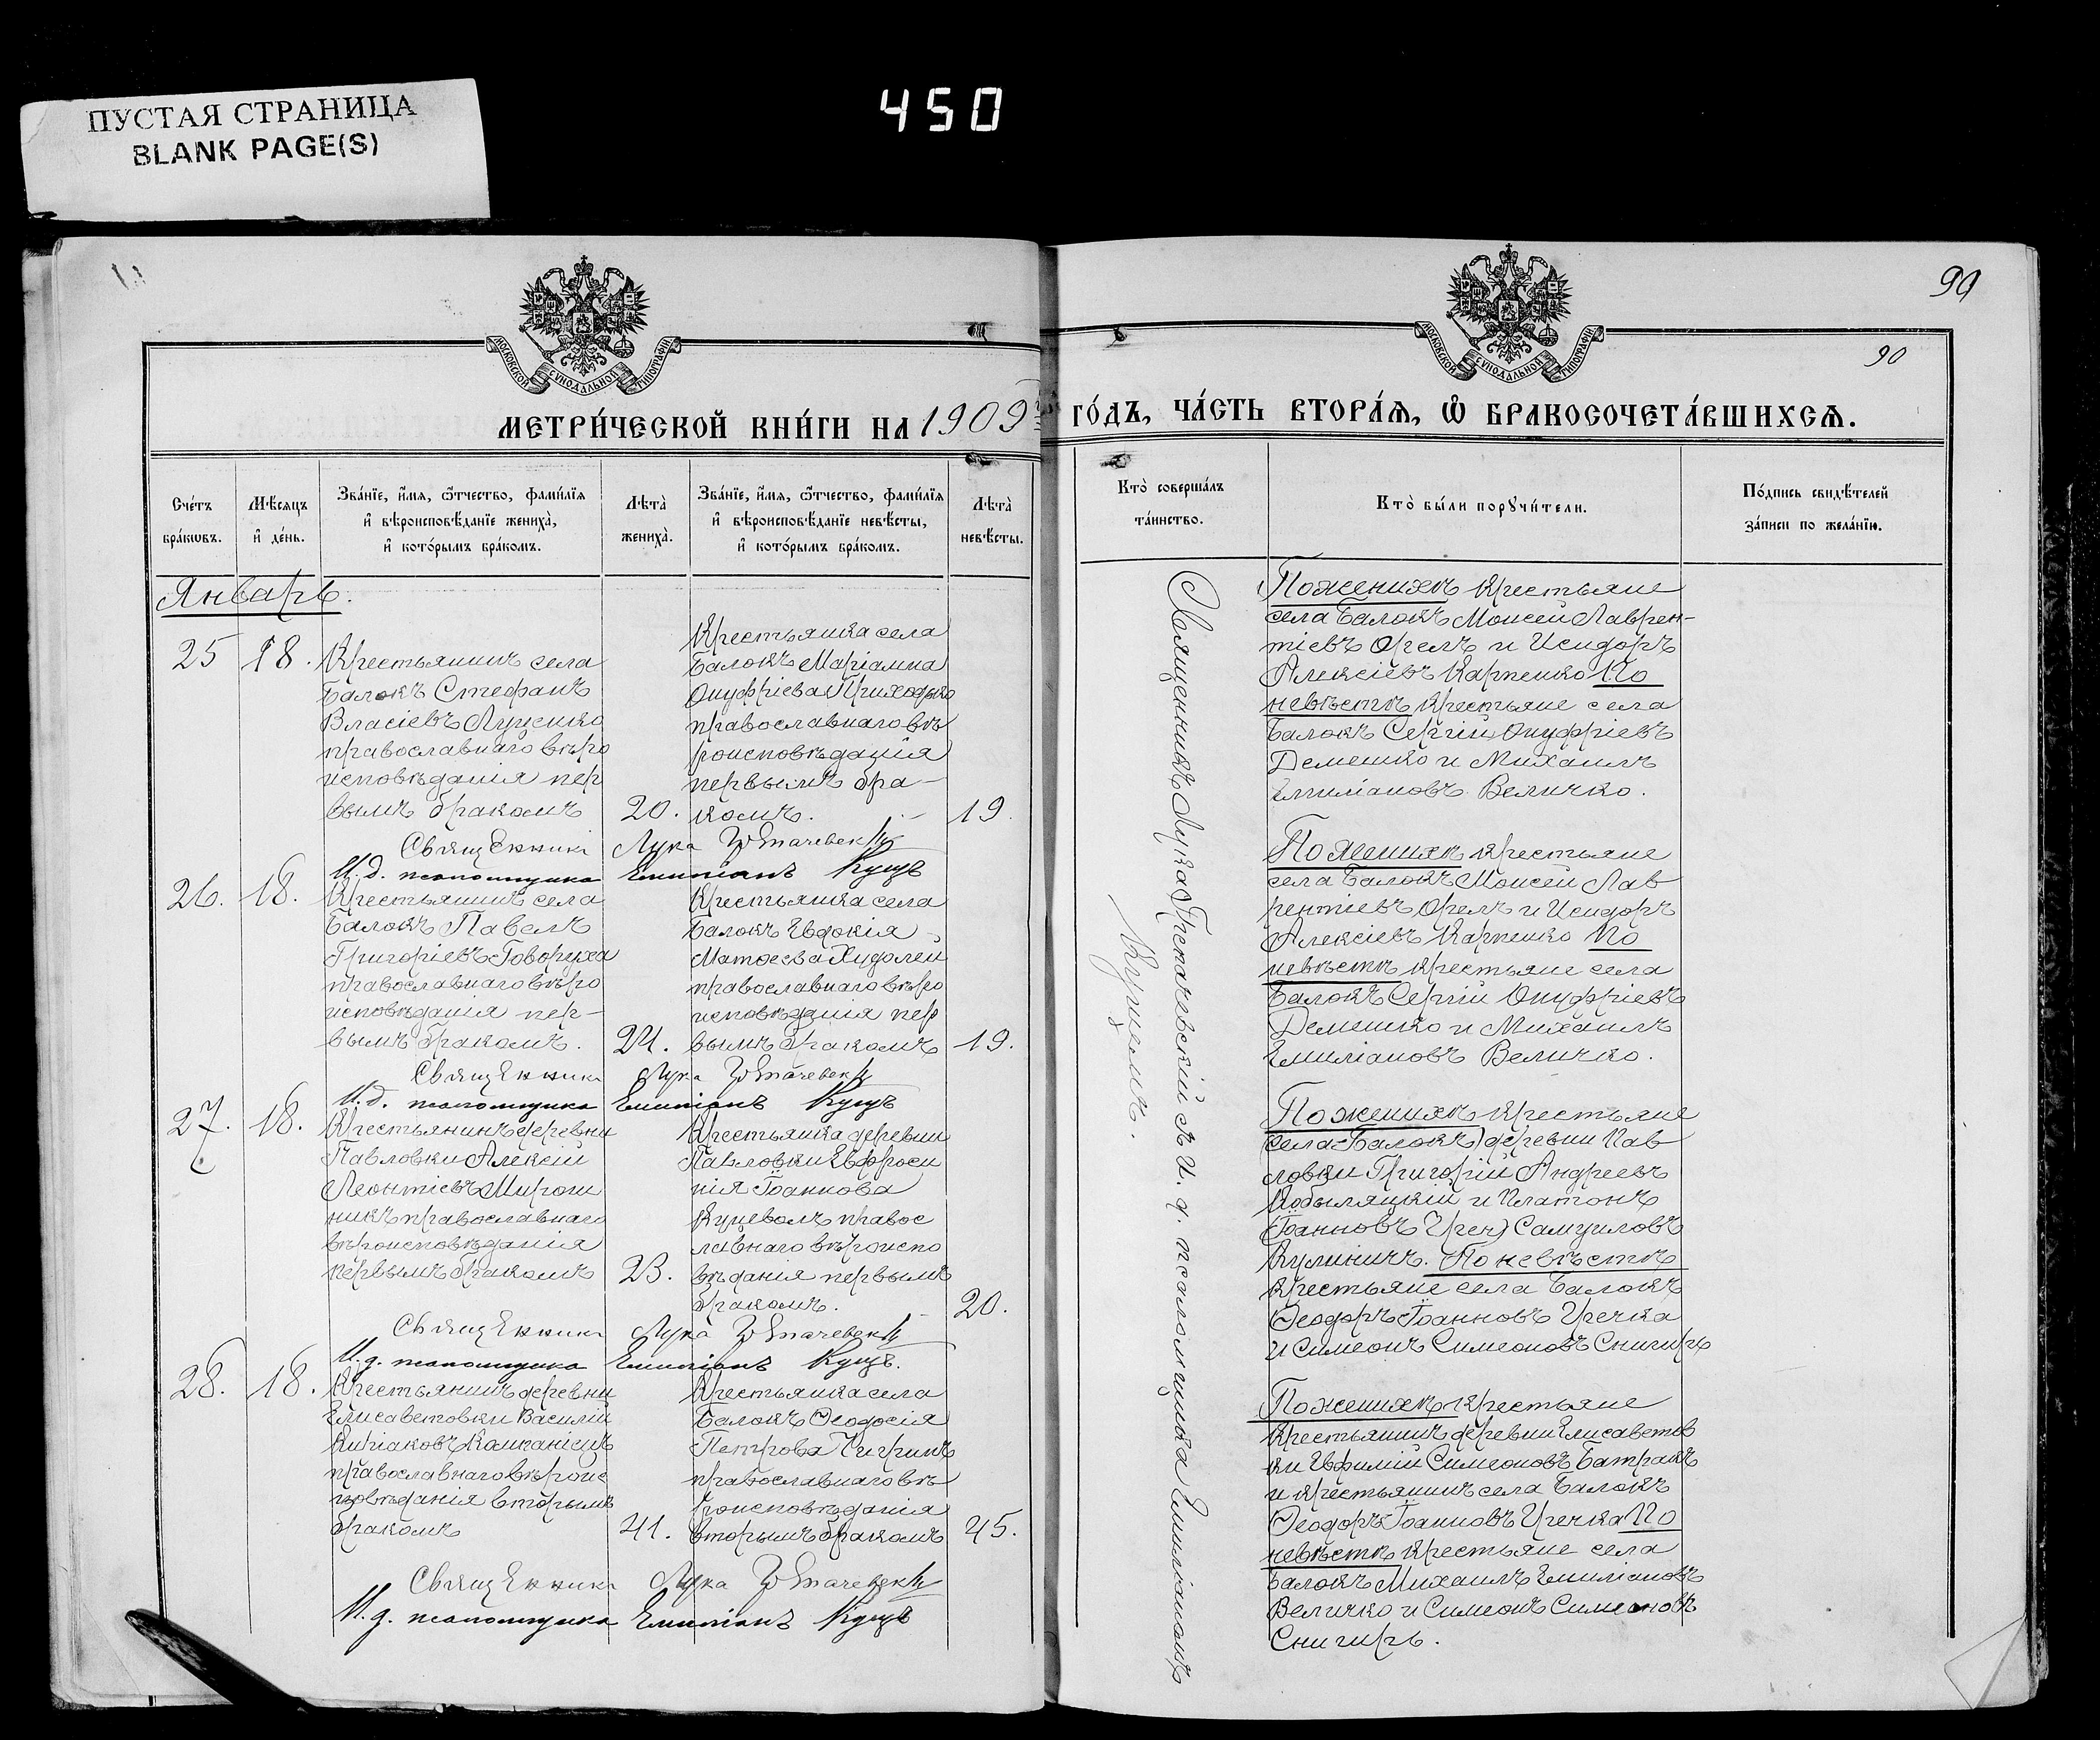 ПУСТАЯ СТРАНИЦА
BLANK PAGE(S)
450
МОСКОВСКОЙ СѴНОДАЛЬНОЙ ТИПОГРАФІИ
МОСКОВСКОЙ СѴНОДАЛЬНОЙ ТИПОГРАФІИ
99
90
МЕТРИ́ЧЕСКОЙ КНИ́ГИ НА 1909 ГО́ДЪ, ЧА́СТЬ ВТОРА́Я, Ѡ БРАКОСОЧЕТА́ВШИХСЯ.
Сче́тъ
бра́кωвъ.
Мѣ́сяцъ
и҆ де́нь.
Зва́нїе, и҆́мя, ѻ҆́тчество, фами́лїя
и҆ вѣроисповѣ́данїе жениха̀,
и҆ кото́рымъ бра́комъ.
Лѣта̀
жениха̀.
Зва́нїе, и҆́мя, ѻ҆́тчество, фами́лїя
и҆ вѣроисповѣ́данїе невѣ́сты,
и҆ кото́рымъ бра́комъ.
Лѣта̀
невѣ́сты.
Кто̀ соверша́лъ
та́инство.
Кто̀ бы́ли порꙋчи́тели.
По́дпись свидѣ́телей
за́писи по жела́нїю.
Январь.
25
18.
Крестьянинъ села
Балокъ Стефанъ
Власіевъ Луценко
православнаго вѣро
исповѣданія пер
вымъ бракомъ
20.
Крестьянка села
Балокъ Маріамна
Онуфріева Приходько
православнаго вѣ
роисповѣданія
первымъ бра-
комъ.
19.
Священникъ Лука
И.д. псаломщика Емиліанъ Куцъ
26.
18.
Крестьянинъ села
Балокъ Павелъ
Григоріевъ Говоруха
православнаго вѣро
исповѣданія пер-
вымъ бракомъ.
24.
Крестьянка села
Балокъ Евдокія
Матѳеева Худолей
православнаго вѣро
исповѣданія пер
вымъ бракомъ
19.
Священникъ Лука
И.д. псаломщика Емиліанъ Куцъ
27.
18.
Крестьянинъ деревни
Павловки Алексій
Леонтіевъ Мирош
никъ православнаго
вѣроисповѣданія
первымъ бракомъ
23.
Крестьянка деревни
Павловки Евфроси
нія Іоаннова
Куцеволъ правос
лавнаго вѣроиспо
вѣданія первымъ
бракомъ.
20.
Священникъ Лука
И.д. псаломщика Емиліанъ Куцъ.
28.
18.
Крестьянинъ деревни
Елисаветовки Василій
Киріаковъ Компаніецъ
православнаго вѣроис
повѣданія вторымъ
бракомъ
41.
Крестьянка села
Балокъ Ѳеодосія
Петрова Чигринъ
православнаго вѣ
роисповѣданія
вторымъ бракомъ
45.
Священникъ Лука
И.д. псаломщика Емиліанъ Куцъ
Священникъ Лука и. д. псаломщика Емиліаномъ
Куцемъ.
По женихѣ крестьяне
села Балокъ Моисей Лаврен-
тіевъ Орелъ и Исидоръ
Алексіевъ Карпенко По
невѣстѣ крестьяне села
Балокъ Сергій Онуфріевъ
Демешко и Михаилъ
Емиліановъ Величко.
По женихѣ крестьяне
села Балокъ Моисей Лав
рентіевъ Орелъ и Исидоръ
Алексіевъ Карпенко По
невѣстѣ крестьяне села
Балокъ Сергій Онуфріевъ
Демешко и Михаилъ
Емиліановъ Величко.
По женихѣ крестьяне
(села Балокъ) деревни Пав
ловки Григорій Андреевъ
Кобыляцкій и Платонъ
(Іоанновъ Греч) Самуиловъ
Кулиничъ. По невѣстѣ
крестьяне села Балокъ
Ѳеодоръ Іоанновъ Гречка
и Симеонъ Симеоновъ Снигирь
По женихѣ крестьяне
крестьянинъ деревни Елисаветов
ки Ефимій Симеоновъ Батракъ
и крестьянинъ села Балокъ
Ѳеодоръ Іоанновъ Гречка По
невѣстѣ крестьяне села
Балокъ Михаилъ Емиліановъ
Величко и Симеонъ Симеоновъ
Снигирь.